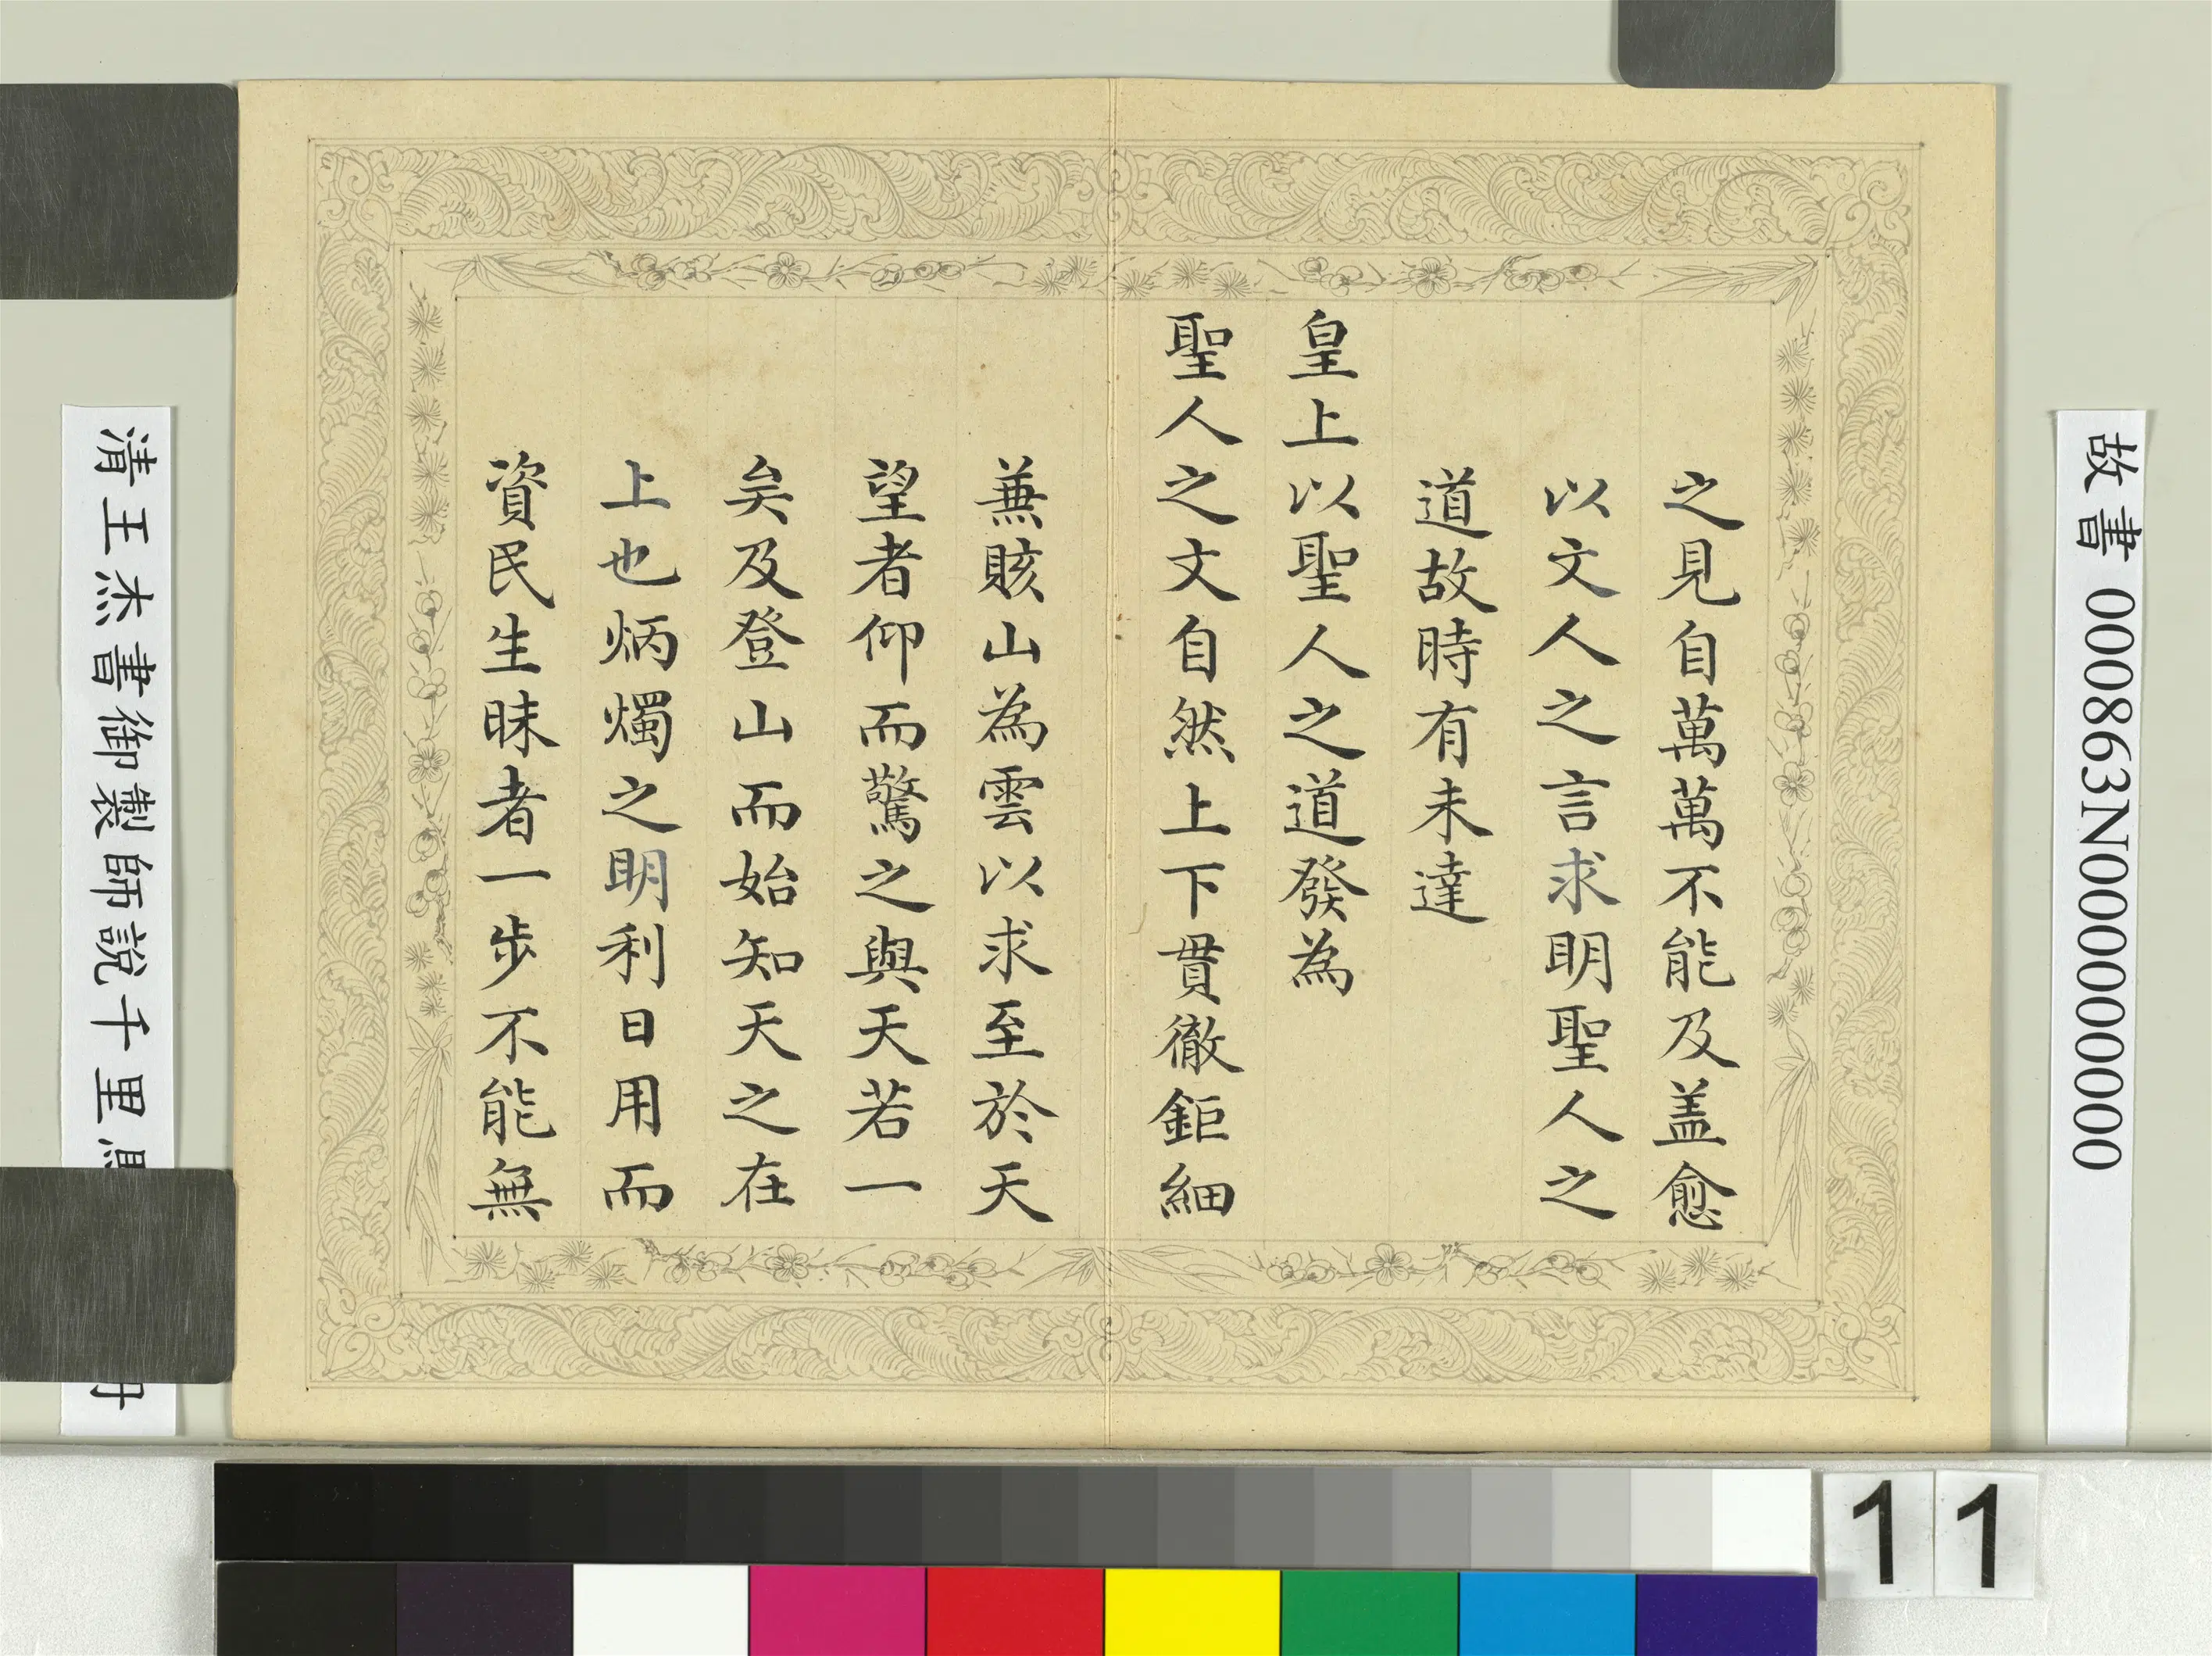 之見自萬萬不能及盖愈
以文人之言求明聖人之
道故時有未達
皇上以聖人之道發為
聖人之文自然上下貫徹鉅細
蕪賅山為雲以求至於天
望者仰而驚之與天若一
矣及登山而始知天之在
上也炳燭之明利日用而
資民生昧者一步不能無
故書 000863N000000000
清王杰書御製師說千里馬
冊
11